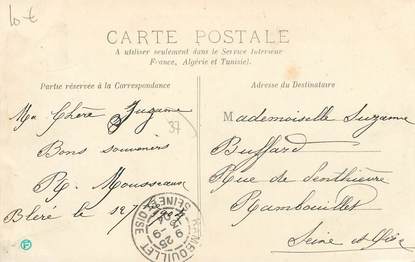 10 €
CARTE POSTALE
A utiliser seulement dans le Service Intérieur
(France, Algérie et Tunisie).
Partie réservée à la Correspondance
Ma Chère Suzanne
37
Bons souvenirs
R. Mousseaux
Bléré le
Adresse du Destinataire
Mademoiselle Suzanne
Buffard
Rue de
Rambouillet
Seine et Oise
RAMBOUILLET
SEINE ET OISE
9 25